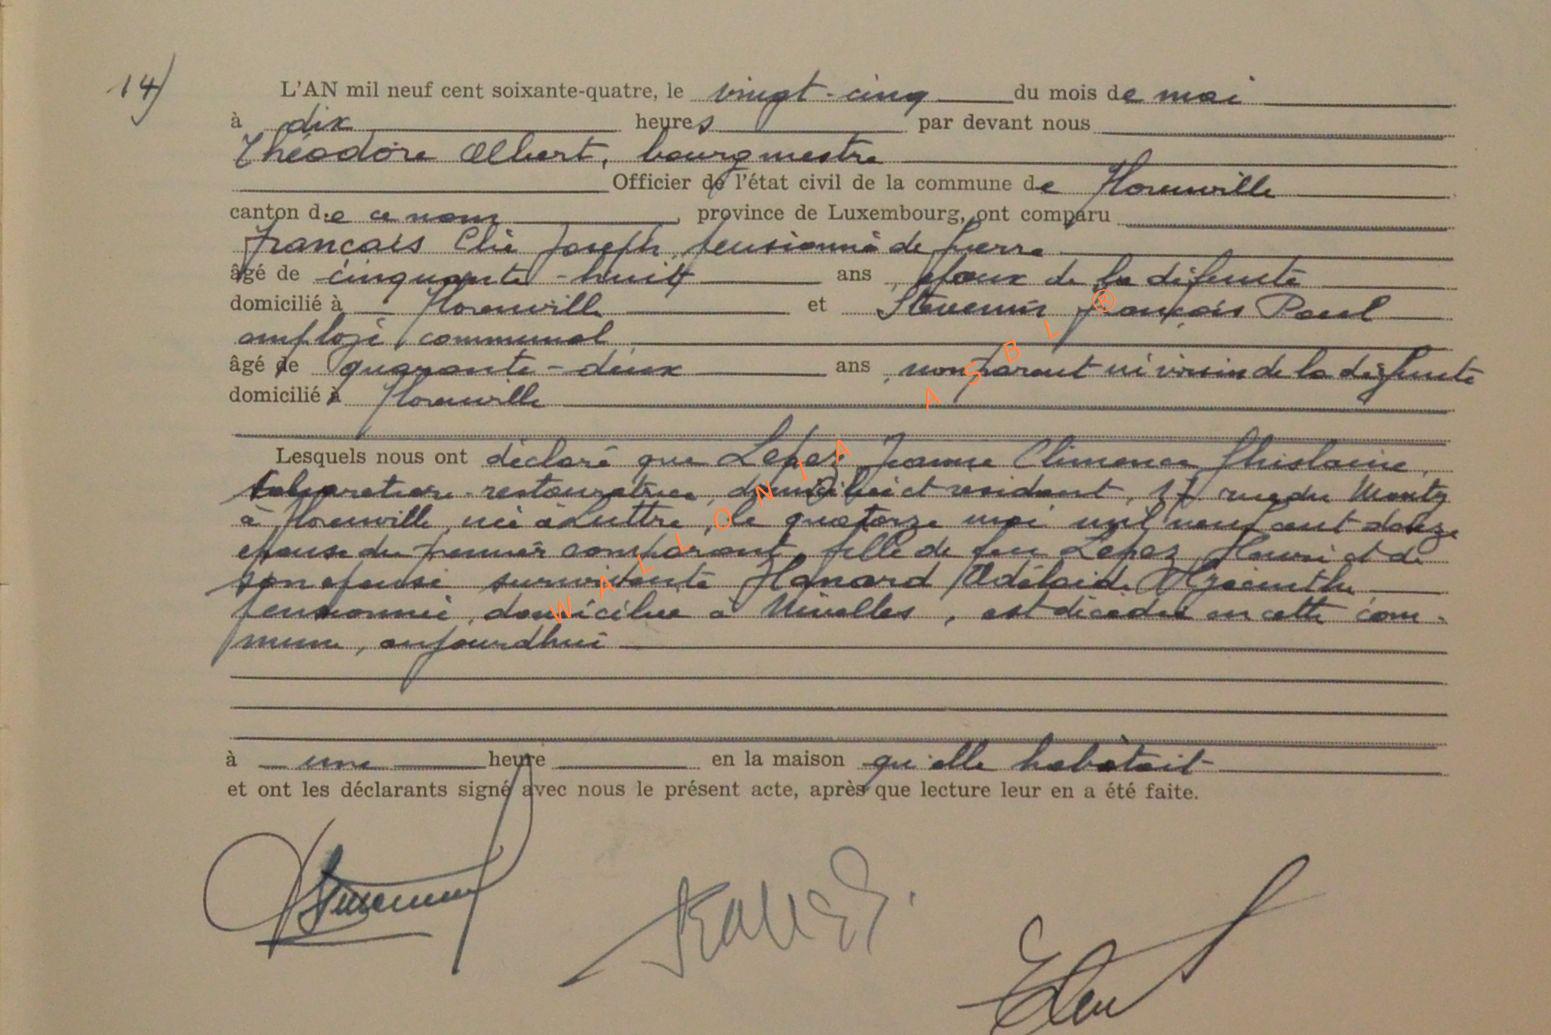 14)
L'AN mil neuf cent soixante-quatre, le vingt-cinq du mois de mai
à dix heures par devant nous
Théodore Albert, bourgmestre
Officier de l'état civil de la commune de Florenville
canton de ce nom, province de Luxembourg, ont comparu
François Elie Joseph, pensionné de guerre
âgé de cinquante-huit ans, époux de la défunte
domicilié à Florenville et Stevenin François Paul
employé communal
âgé de quarante-deux ans, non parent ni voisin de la défunte
domicilié à Florenville
Lesquels nous ont déclaré que Lepez Jeanne Clémence Ghislaine,
restauratrice, domiciliée et résidant, 17 rue du
à Florenville, née à Luttre, le quatorze mai mil neuf cent douze
épouse du premier comparant, fille de feu Lepez Henri et de
son épouse survivante Hanard Adélaïde Hyacinthe
pensionnée, domiciliée à Nivelles, est décédée en cette com-
mune, aujourdhui
à une heure en la maison qu'elle habitait
et ont les déclarants signé avec nous le présent acte, après que lecture leur en a été faite.
WALLONIA ASBL ®